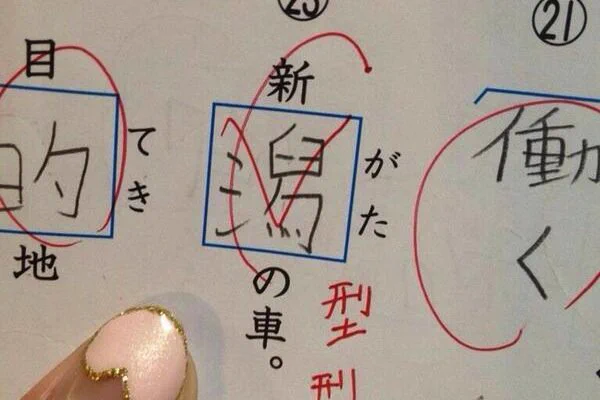 ㉑
働く
新潟の車。
がた
型型
目的地
てき